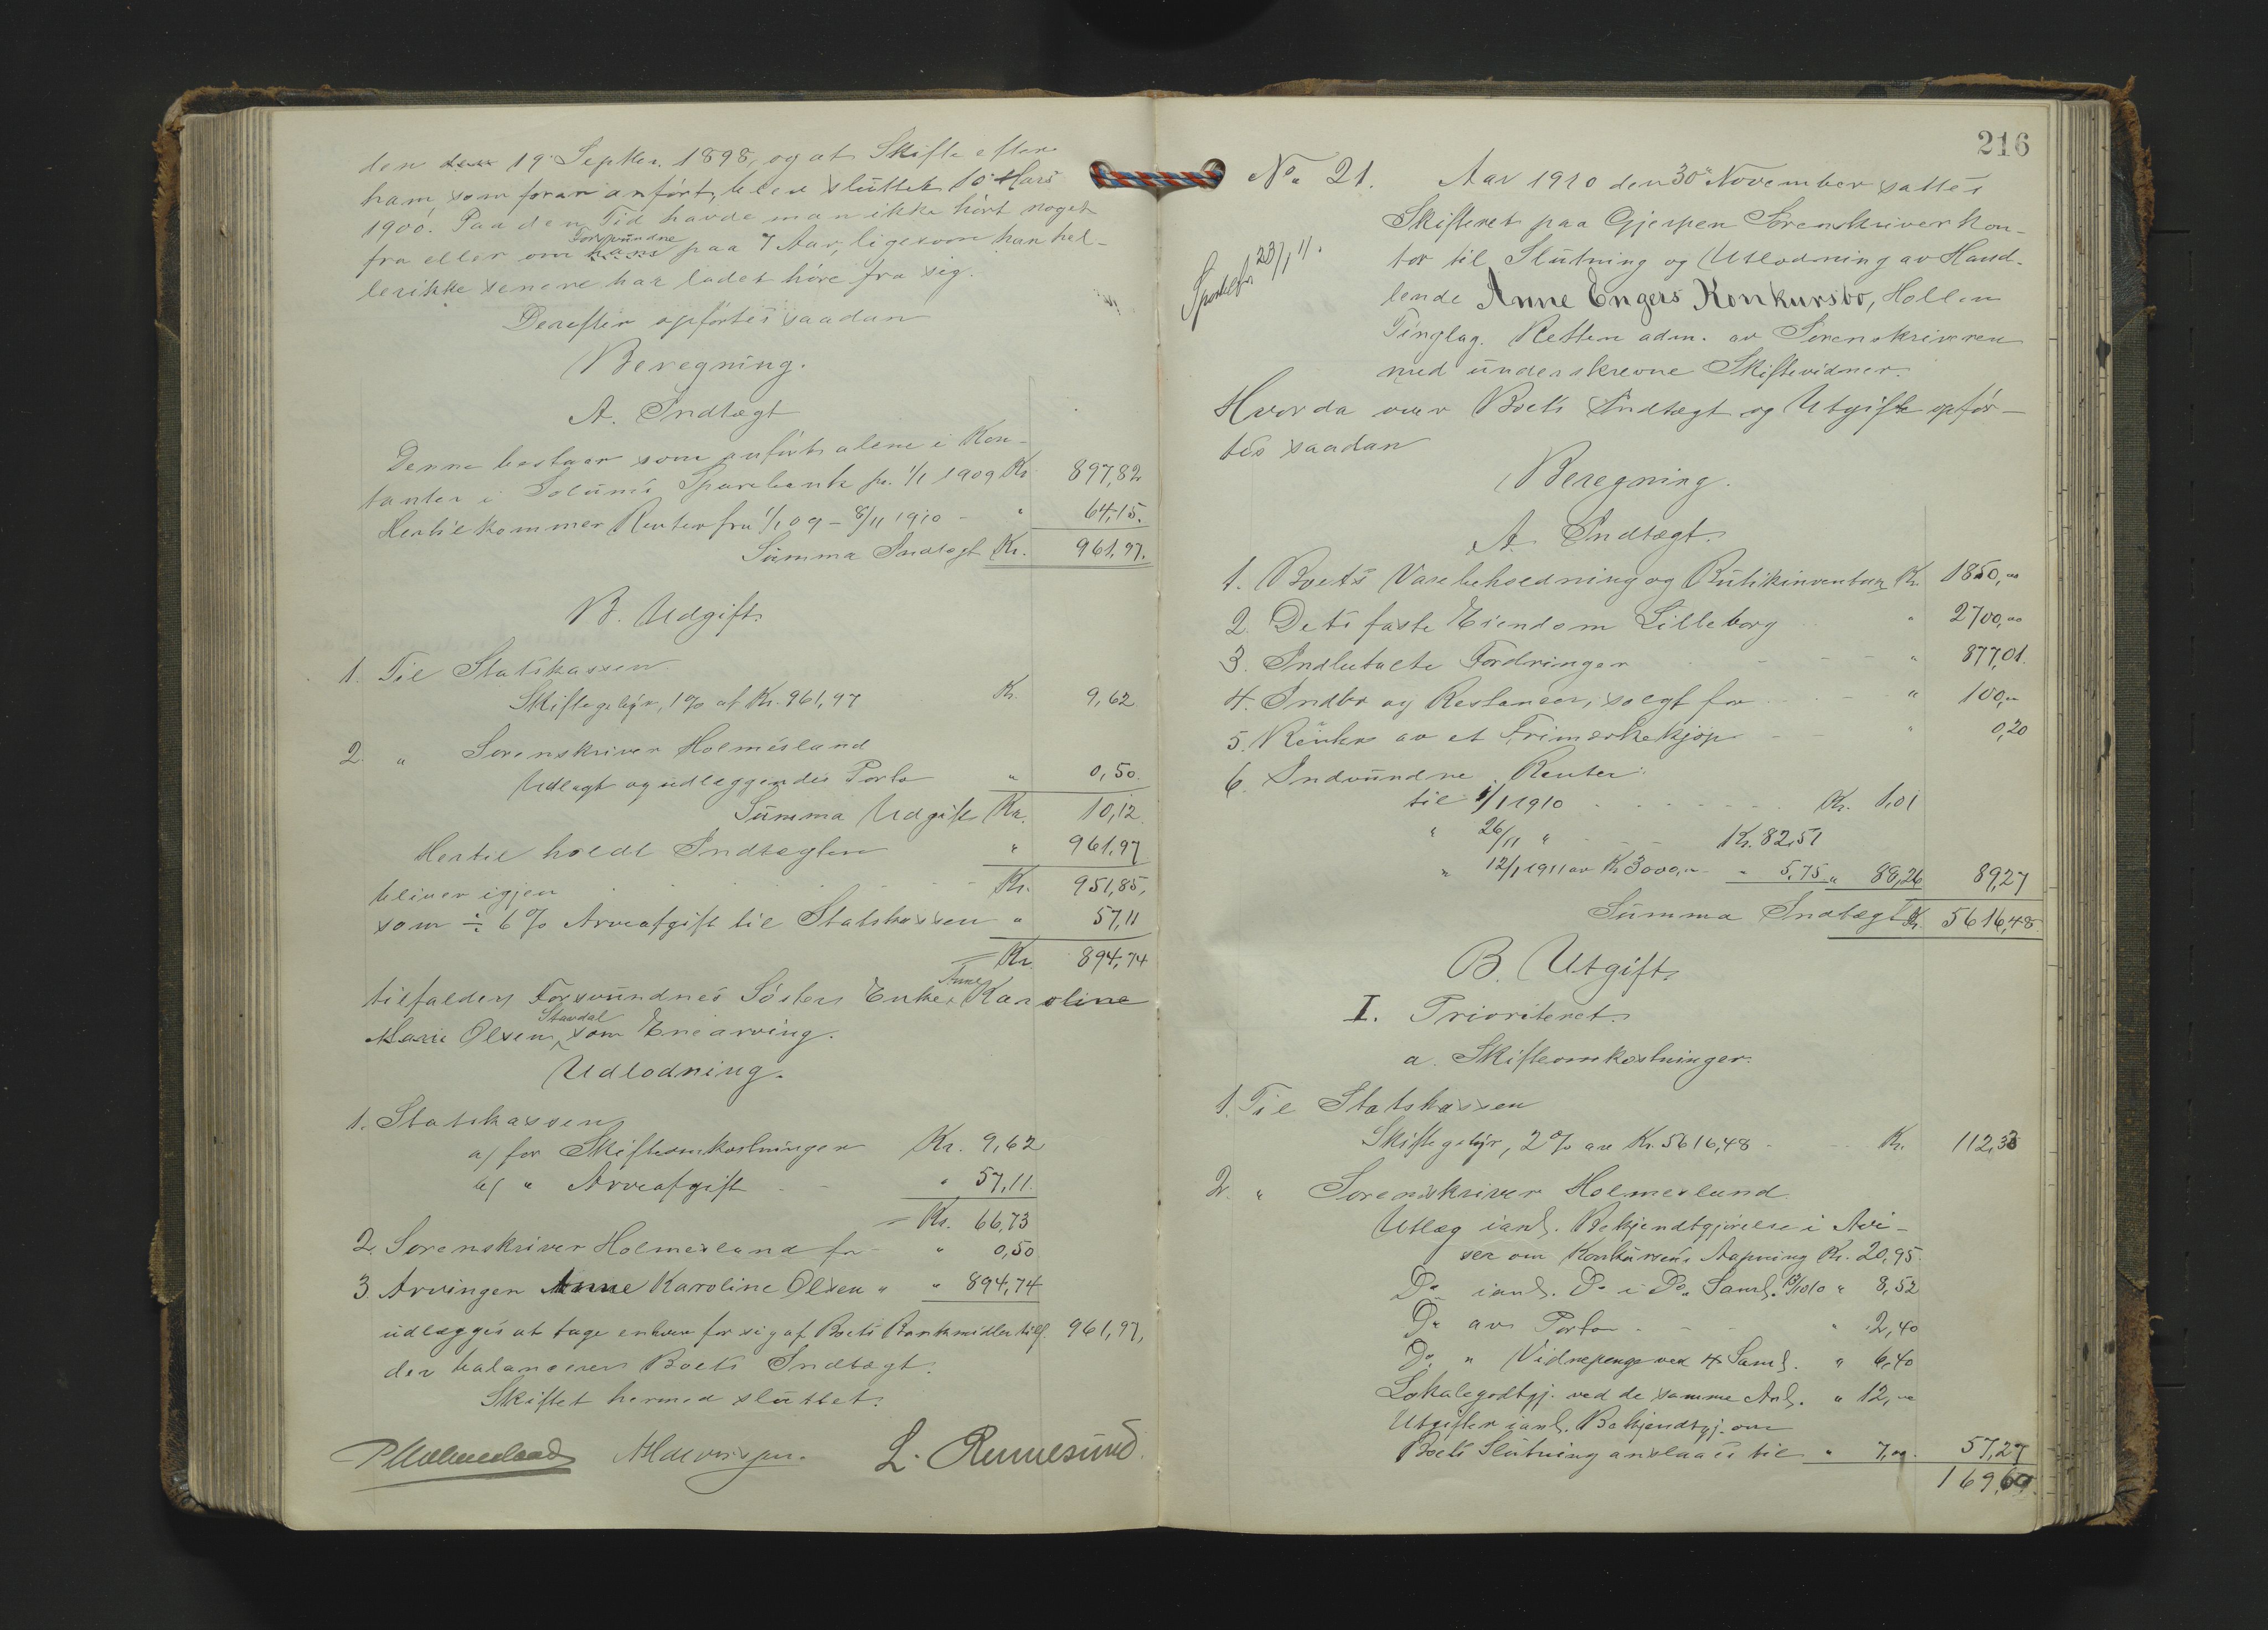 den 19. Septbr. 1898, og at Skifte efter
ham, som foran anført, blev sluttet 10 Mars
1900. Paa den Tid havde man ikke hørt noget
Forsvundne
fra eller om hans paa 7 Aar, ligesom han hel-
lerikke senere har ladet høre fra sig.
Derefter opførtes saadan
Beregning.
A. Indtægt
Denne bestaar som anført alene i Kon-
tanter i Solums Sparebank pr. 1/1 1909 Kr. 897,82
Hertil kommer Renter fra 1/1 09 - 8/11 1910 - " 64,15.
Summa Indtægt Kr. 961,97.
B. Udgift.
1. Til Statskassen
Skiftegebyr, 1% af Kr. 961,97 Kr. 9,62
2. " Sorenskriver Holmesland
Udlagt og udlæggendes Porto " 0,50.
Summa Udgift Kr. 10,12.
Hertil holdt Indtægten " 961,97
bliver igjen Kr. 951,85,
som ÷ 6% Arveafgift til Statskassen " 57,11
= Kr. 894,74
Anne
tilfalder Forsvundnes Søster Enke Karoline
Stavdal
Marie Olsen, som Enearving.
Udlodning.
1. Statskassen
a/ for Skifteomkostninger Kr. 9,62
b/ " Arveafgift - - " 57,11.
= Kr. 66,73
2. Sorenskriver Holmesland for " 0,50
3. Arvingen Anne Karoline Olsen " " 894,74
udlægges at tage enhver for sig af Boets Bankmidler tils. 961,97,
der balancerer Boets Indtægt.
Skiftet hermed sluttet.
PHolmesland L. Rennesund.
216
No. 21. Aar 1910 den 30 November sattes
Skifteret paa Gjerpen Sorenskriverkon-
tor til Slutning og Utlodning av Hand-
23/1 11.
lende Anne Engers Konkursbo, Hollen
Tinglag. Retten adm. av Sorenskriveren
med underskrevne Skiftevidner.
Hvorda over Boets Indtægt og Utgift opfør-
tes saadan
Beregning.
A. Indtægt.
1. Boets Varebeholdning og Butikinventar Kr. 1850,00
2. Dets faste Eiendom Lilleborg " 2700,00
3. Indbetalte Fordringer - - - " 877,01.
4. Indbo og Restancer, solgt for - " 100,00
5. av et Frimærkekjøp - - " 0,20
6. Indvundne Renter:
til 1/1 1910 Kr. 1,01
" 26/11 " - - Kr. 82,51
" 12/1 1911 av Kr. 3000,00 - " 5,75 " 88,26 89,27
Summa Indtægt Kr. 5616,48.
B. Utgift.
I. Prioriteret.
a. Skifteomkostninger.
1. Til Statskassen
Skiftegebyr, 2% av Kr. 5616,48 - Kr. 112,33
2. " Sorenskriver Holmesland
Utlæg ianl. Bekjendtgjørelse i Avi-
ser om Konkursens Aapning Kr. 20,95.
Do ianl. Do i Do Saml. 10/10 " 8,52
Do av Porto - - - " 2,40
Do " Vidnepenge ved 4 Saml. " 6,40
Lokalegodtgj. ved de samme Anl. " 12,00
Utgifter ianl. Bekjendtgj. om
Boets Slutning anslaaes til " 7,00. 57,27
169,60.